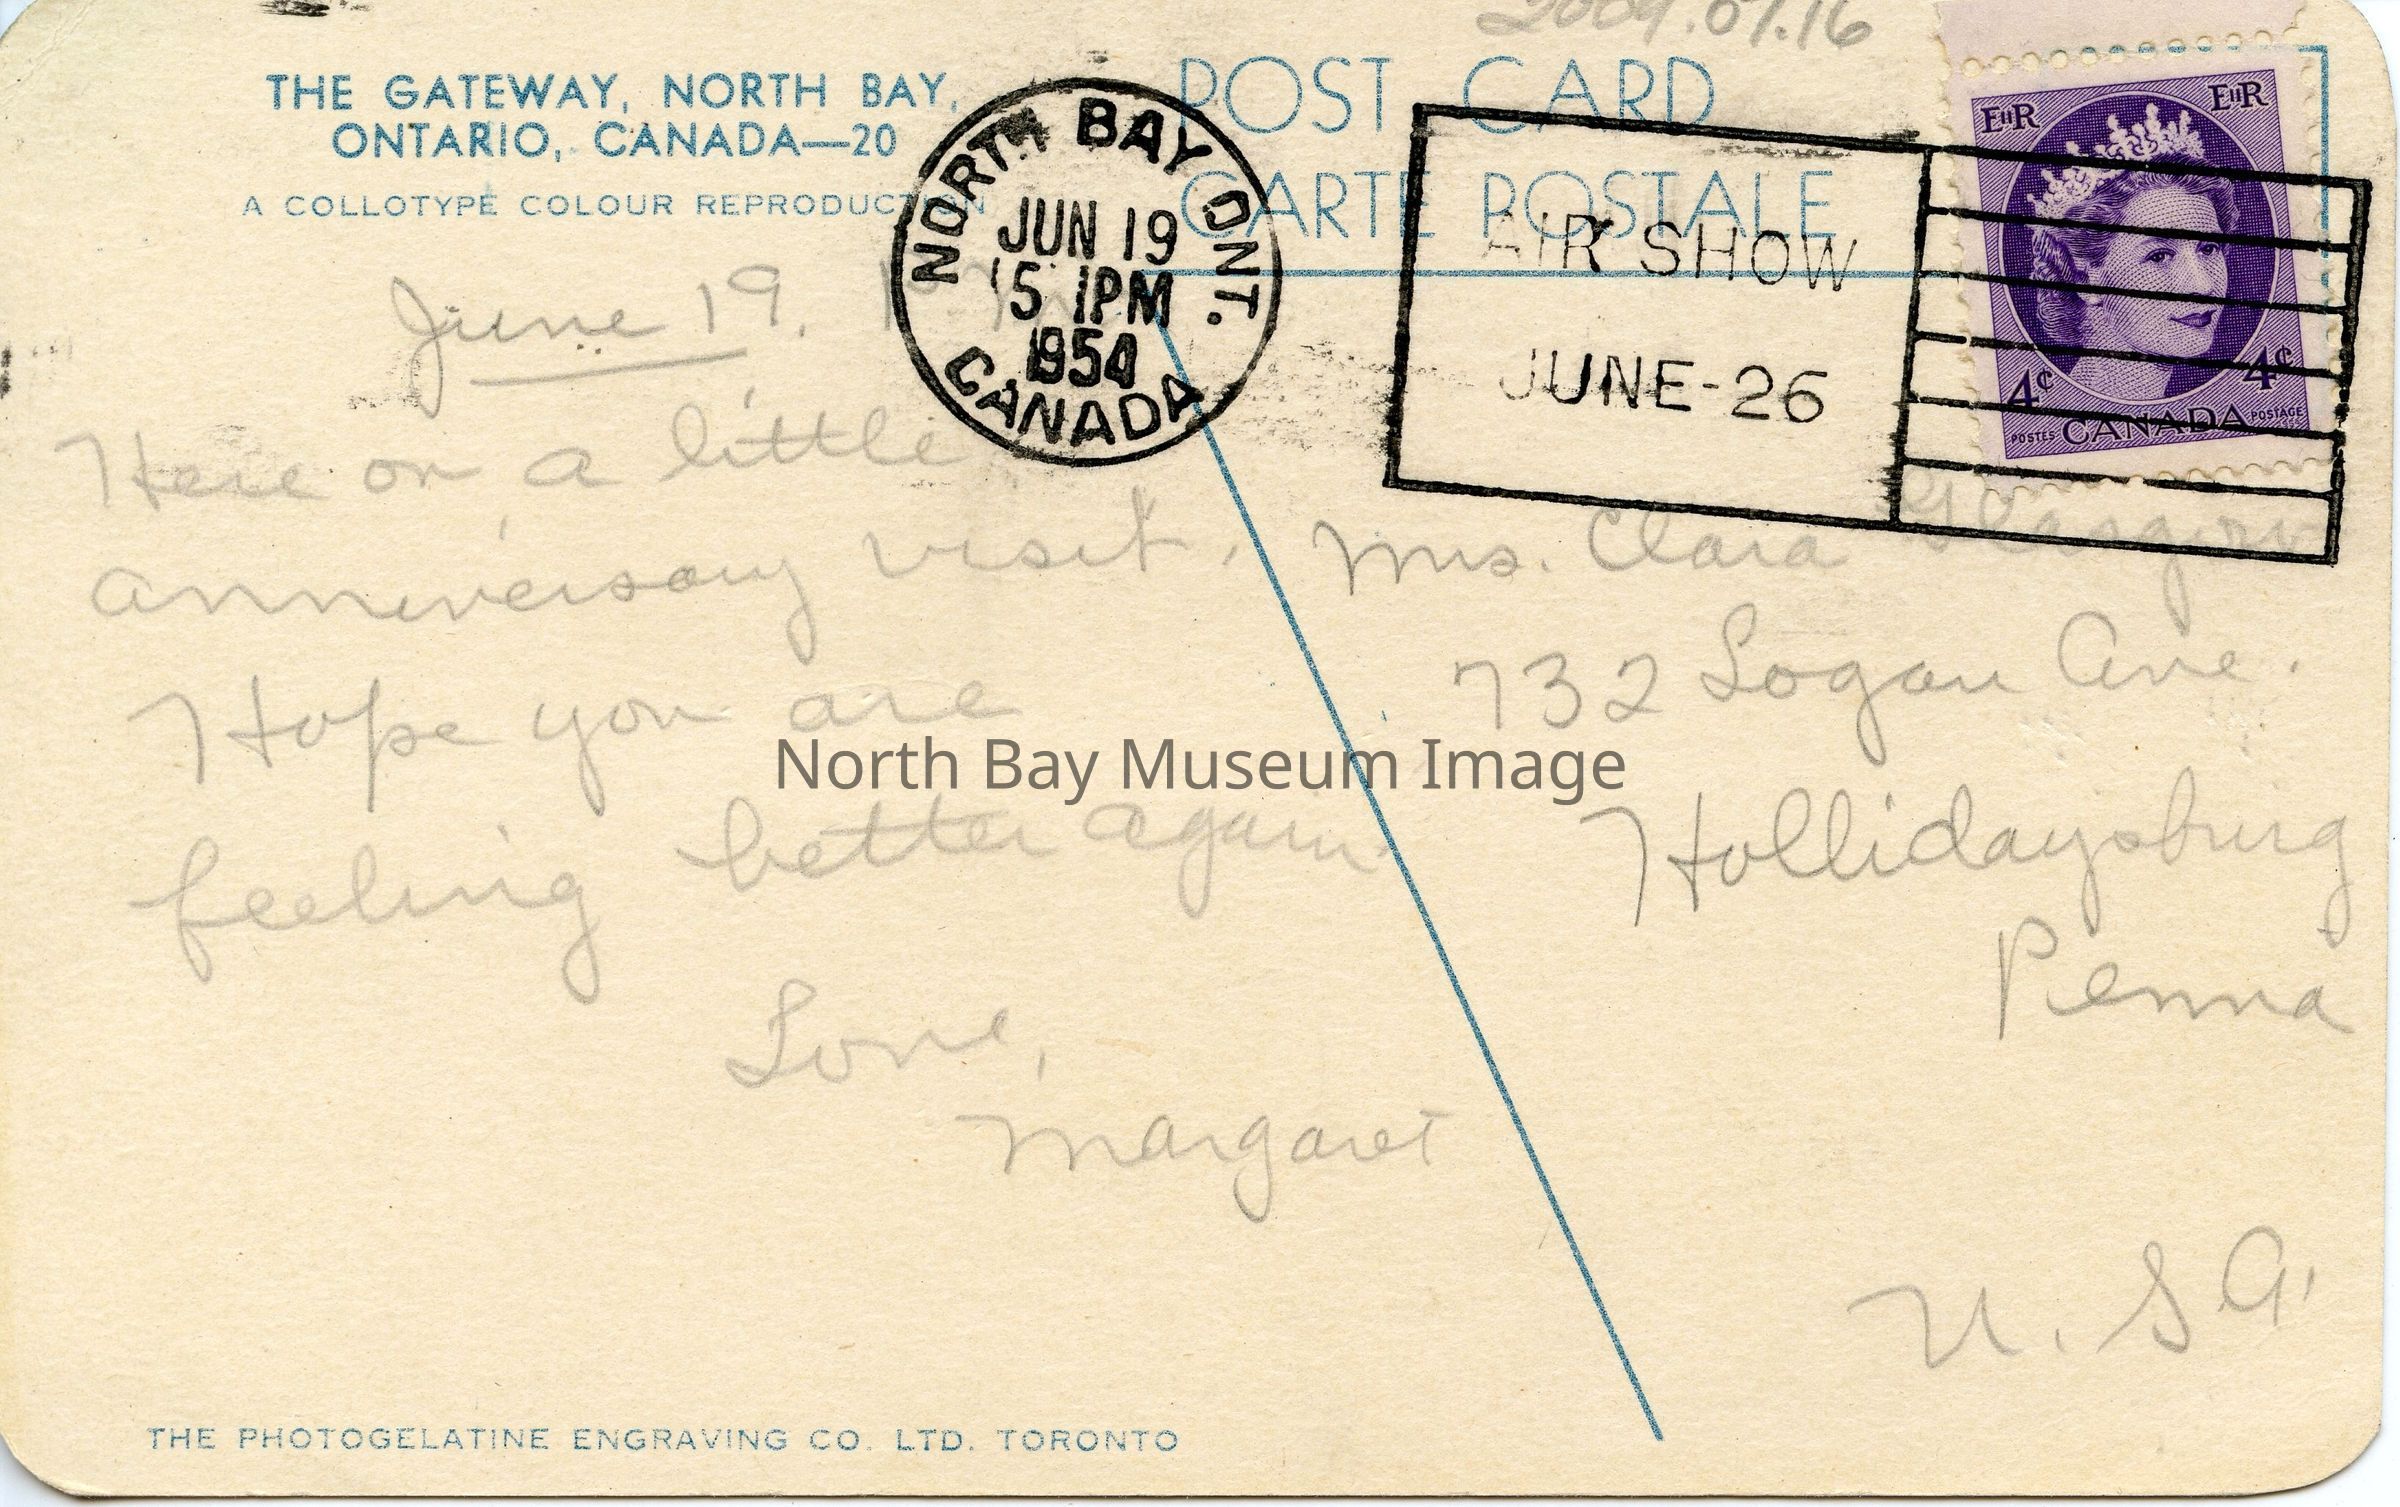 2009.07.16
THE GATEWAY, NORTH BAY,
ONTARIO, CANADA—20
A COLLOTYPE COLOUR REPRODUCTION
POST CARD
CARTE POSTALE
NORTH BAY ONT.
JUN 19
15 1PM
1954
CANADA
AIR SHOW
JUNE-26
EIIR EIIR
4¢ 4¢
POSTES CANADA POSTAGE
June 19.
Here on a little
anniversary visit.
Hope you are
feeling better again.
Love,
Margaret
Mrs. Clara Glasgow
732 Logan Ave.
Hollidaysburg
Penna
U.S.A.
North Bay Museum Image
THE PHOTOGELATINE ENGRAVING CO. LTD. TORONTO